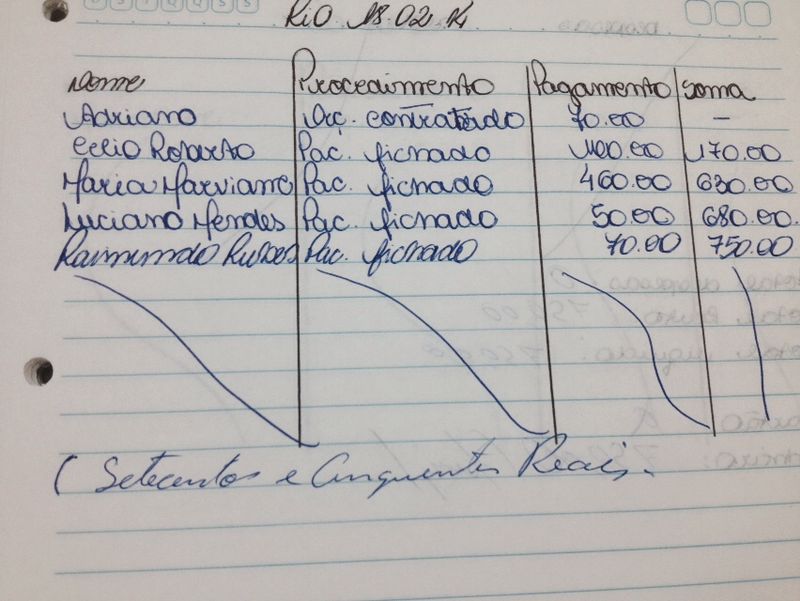 Rio 18.02.14
Nome Procedimento Pagamento soma
Adriano Orç. contratado 70.00 -
Celio Roberto Pac. fichado 100.00 170.00
Maria Marviane Pac. fichado 460.00 630.00
Luciano Mendes Pac. fichado 50.00 680.00.
Raimundo Pac. fichado 70.00 750.00
( Setecentos e Cinquentes Reais.